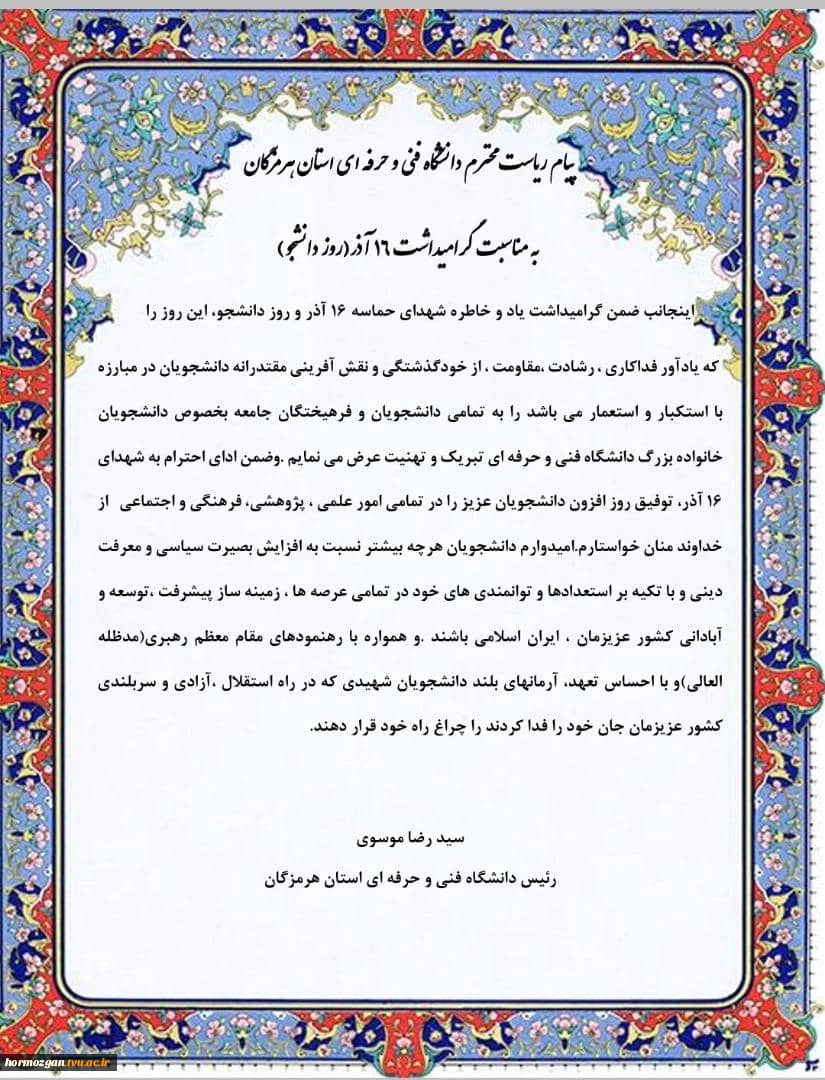 پیام ریاست محترم دانشگاه فنی و حرفه ای استان هرمزگان
به مناسبت گرامیداشت ۱۶ آذر (روز دانشجو)
اینجانب ضمن گرامیداشت یاد و خاطره شهدای حماسه ۱۶ آذر و روز دانشجو، این روز را
که یادآور فداکاری ، رشادت ،مقاومت ، از خودگذشتگی و نقش آفرینی مقتدرانه دانشجویان در مبارزه
با استکبار و استعمار می باشد را به تمامی دانشجویان و فرهیختگان جامعه بخصوص دانشجویان
خانواده بزرگ دانشگاه فنی و حرفه ای تبریک و تهنیت عرض می نمایم .وضمن ادای احترام به شهدای
۱۶ آذر، توفیق روز افزون دانشجویان عزیز را در تمامی امور علمی ، پژوهشی، فرهنگی و اجتماعی از
خداوند منان خواستارم.امیدوارم دانشجویان هرچه بیشتر نسبت به افزایش بصیرت سیاسی و معرفت
دینی و با تکیه بر استعدادها و توانمندی های خود در تمامی عرصه ها ، زمینه ساز پیشرفت ،توسعه و
آبادانی کشور عزیزمان ، ایران اسلامی باشند .و همواره با رهنمودهای مقام معظم رهبری(مدظله
العالی)و با احساس تعهد، آرمانهای بلند دانشجویان شهیدی که در راه استقلال ،آزادی و سربلندی
کشور عزیزمان جان خود را فدا کردند را چراغ راه خود قرار دهند.
سید رضا موسوی
رئیس دانشگاه فنی و حرفه ای استان هرمزگان
hormozgan.tvu.ac.ir